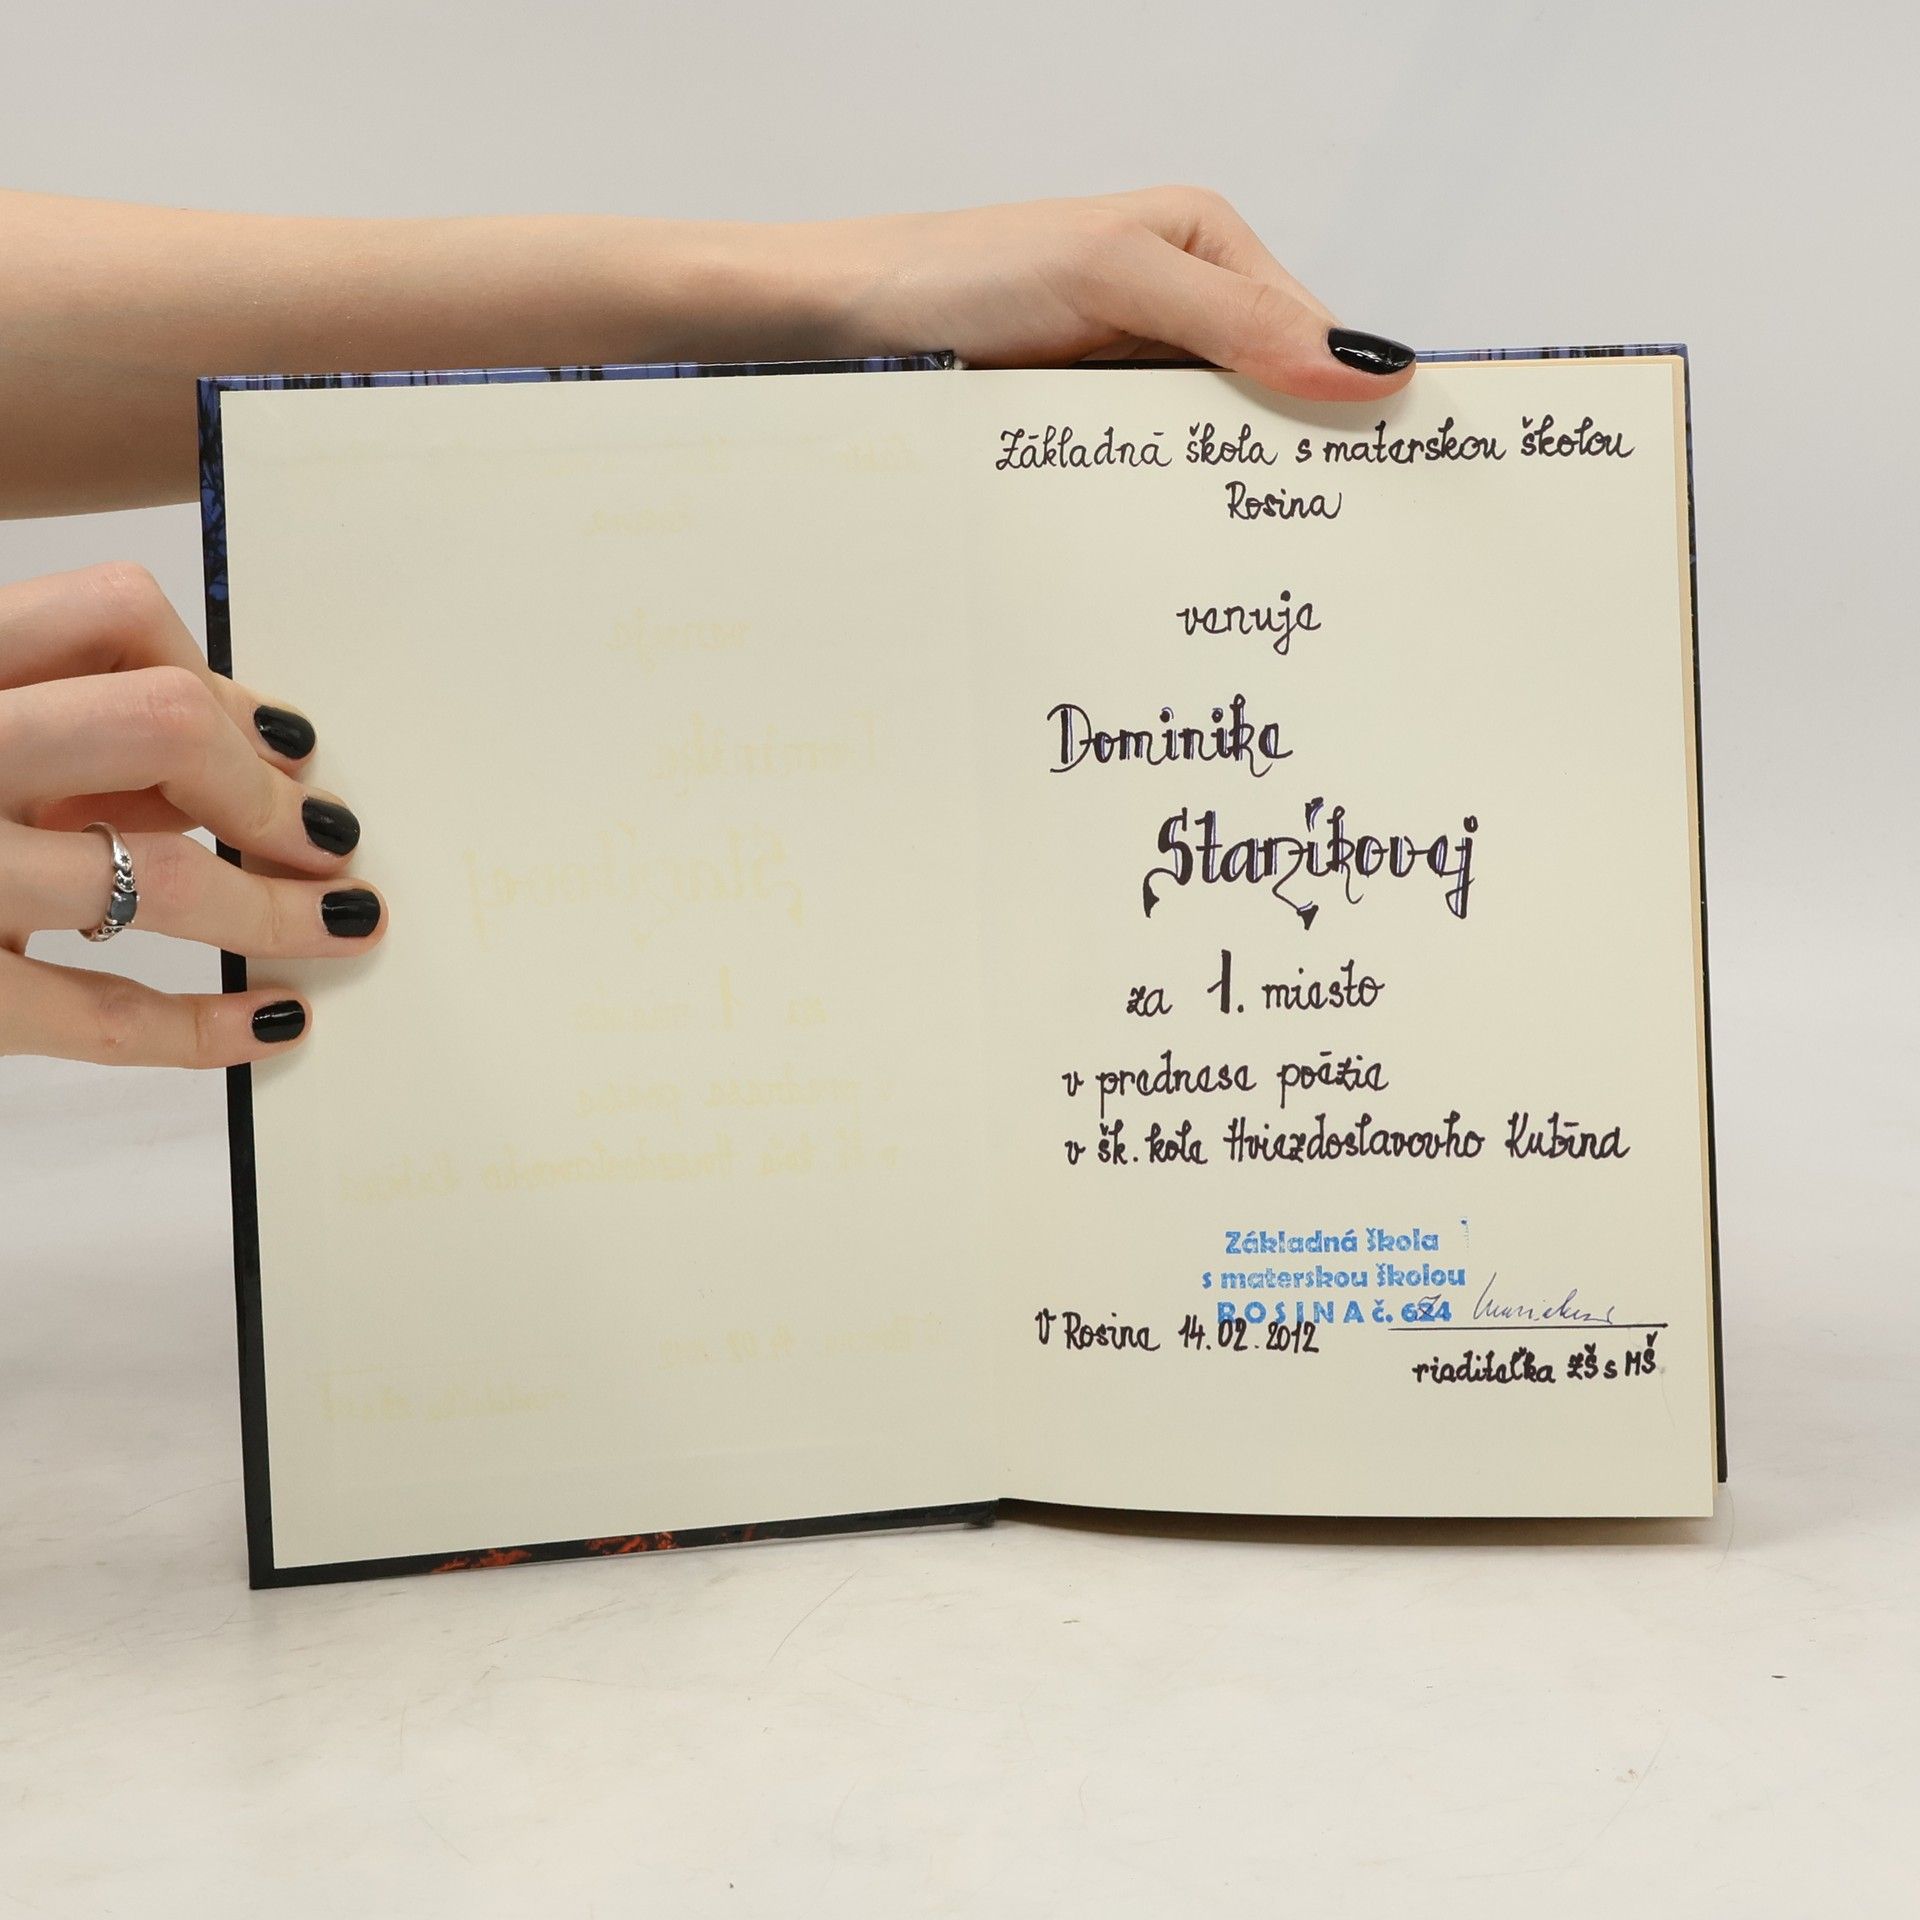 Základná škola s materskou školou
Rosina
venuje
Dominike
Staníkovej
za 1. miesto
v prednese poézie
v šk. kole Hviezdoslavovho Kubína
Základná škola
s materskou školou
ROSINA č. 624
V Rosine 14.02.2012
riaditeľka ZŠ s MŠ